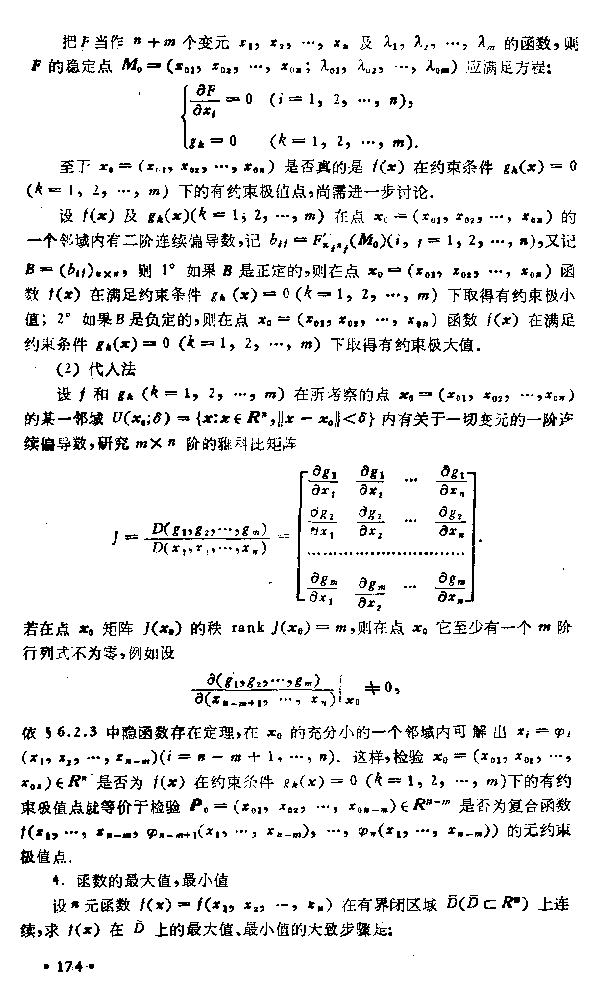 把 F 当作 n + m 个变元 x₁, x₂, …, xₙ 及 λ₁, λ₂, …, λₘ 的函数,则
F 的稳定点 M₀ = (x₀₁, x₀₂, …, x₀ₙ; λ₀₁, λ₀₂, …, λ₀ₘ) 应满足方程:
∂F/∂xᵢ = 0 (i = 1, 2, …, n),
gₖ = 0 (k = 1, 2, …, m).
至于 x₀ = (x₀₁, x₀₂, …, x₀ₙ) 是否真的是 f(x) 在约束条件 gₖ(x) = 0
(k = 1, 2, …, m) 下的有约束极值点,尚需进一步讨论.
设 f(x) 及 gₖ(x)(k = 1, 2, …, m) 在点 x₀ = (x₀₁, x₀₂, …, x₀ₙ) 的
一个邻域内有二阶连续偏导数,记 bᵢⱼ = F″ₓᵢₓⱼ(M₀)(i, j = 1, 2, …, n),又记
B = (bᵢⱼ)ₙₓₙ, 则 1° 如果 B 是正定的,则在点 x₀ = (x₀₁, x₀₂, …, x₀ₙ) 函
数 f(x) 在满足约束条件 gₖ(x) = 0 (k = 1, 2, …, m) 下取得有约束极小
值; 2° 如果 B 是负定的,则在点 x₀ = (x₀₁, x₀₂, …, x₀ₙ) 函数 f(x) 在满足
约束条件 gₖ(x) = 0 (k = 1, 2, …, m) 下取得有约束极大值.
(2) 代入法
设 f 和 gₖ (k = 1, 2, …, m) 在所考察的点 x₀ = (x₀₁, x₀₂, …, x₀ₙ)
的某一邻域 U(x₀;δ) = {x:x ∈ Rⁿ,‖x − x₀‖<δ} 内有关于一切变元的一阶连
续偏导数,研究 m×n 阶的雅科比矩阵
J = D(g₁,g₂,…,gₘ)/D(x₁,x₂,…,xₙ) = [∂g₁/∂x₁ ∂g₁/∂x₂ … ∂g₁/∂xₙ
∂g₂/∂x₁ ∂g₂/∂x₂ … ∂g₂/∂xₙ
……………………
∂gₘ/∂x₁ ∂gₘ/∂x₂ … ∂gₘ/∂xₙ].
若在点 x₀ 矩阵 J(x₀) 的秩 rank J(x₀) = m,则在点 x₀ 它至少有一个 m 阶
行列式不为零,例如设
∂(g₁,g₂,…,gₘ)/∂(xₙ₋ₘ₊₁, …, xₙ)|x₀ ≠ 0,
依 §6.2.3 中隐函数存在定理,在 x₀ 的充分小的一个邻域内可解出 xᵢ = φᵢ
(x₁, x₂, …, xₙ₋ₘ)(i = n − m + 1, …, n). 这样,检验 x₀ = (x₀₁, x₀₂, …,
x₀ₙ) ∈ Rⁿ 是否为 f(x) 在约束条件 gₖ(x) = 0 (k = 1, 2, …, m)下的有约
束极值点就等价于检验 P₀ = (x₀₁, x₀₂, …, x₀ₙ₋ₘ) ∈ Rⁿ⁻ᵐ 是否为复合函数
f(x₁, …, xₙ₋ₘ, φₙ₋ₘ₊₁(x₁, …, xₙ₋ₘ), …, φₙ(x₁, …, xₙ₋ₘ)) 的无约束
极值点.
4. 函数的最大值,最小值
设 n 元函数 f(x) = f(x₁, x₂, …, xₙ) 在有界闭区域 D̄(D̄ ⊂ Rⁿ) 上连
续,求 f(x) 在 D̄ 上的最大值、最小值的大致步骤是:
• 174 •